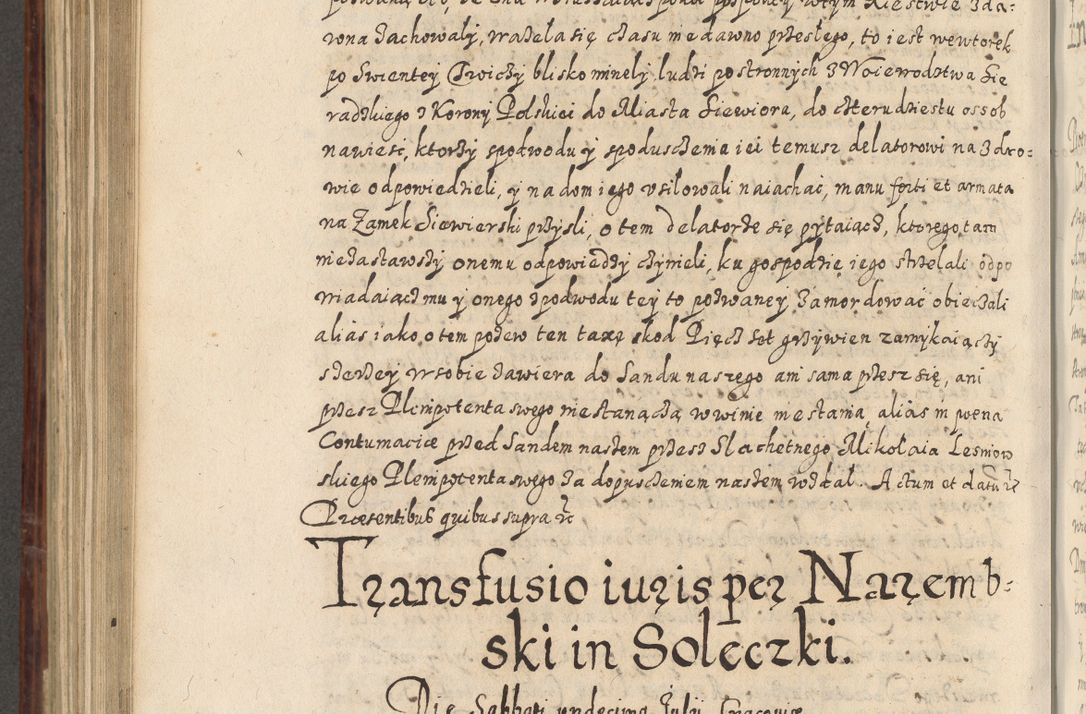 wona zachowały, wazeła się czasu niedawno przeszłego, to iest wewtorek
po Swientey Troiczy blisko minely ludzi postronnych z Woiewodztwa Sie
radzkiego z Korony Polskiei do Miasta Siewiora, do czterudziestu ossob
nawieść, ktorzy spodwodu y spoduszczenia iei temusz delatorowi na zdro-
wie odpowiedzieli, y na dom iego vsilowali naiachać, manu forti et armata
na Zamek Siewierski przysli, o tem delatorze się pytaiącz, ktorego tam
niezastawszy onemu odpowiedzy czynieli, ku gospodzie iego strzelali odpo
wiadaiącz mu y onego z podwodu tey to pozwaney zamordować obieczali
alias iako o tem pozew ten taxę szkod Pięcz set grzywien zamykaiączy
szerzey w sobie zawiera do Sandu naszego ani sama przesz się, ani
przesz Plenipotenta swego nie stanączą w winie niestania alias in poena
Contumaciae przed Sandem naszem przesz Slachetnego Mikołaia Lesniow
skiego Plenipotenta swego za dopuszczeniem naszem wzdał. Actum et datum
Praesentibus quibus supra
Transfusio iuris per Naremb-
ski in Soleczki.
Die Sabbati undecima Julii Cracoviae